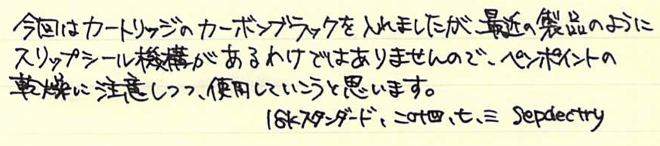 今回はカートリッジのカーボンブラックを入れましたが、最近の製品のように
スリップシール機構があるわけではありませんので、ペンポイントの
乾燥に注意しつつ、使用していこうと思います。
18kスタンダード、二〇十四、七、三 Sepdectry